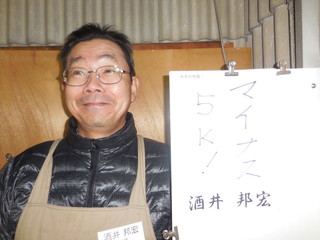 マイナス
5K!
酒井 邦宏
酒井 邦宏